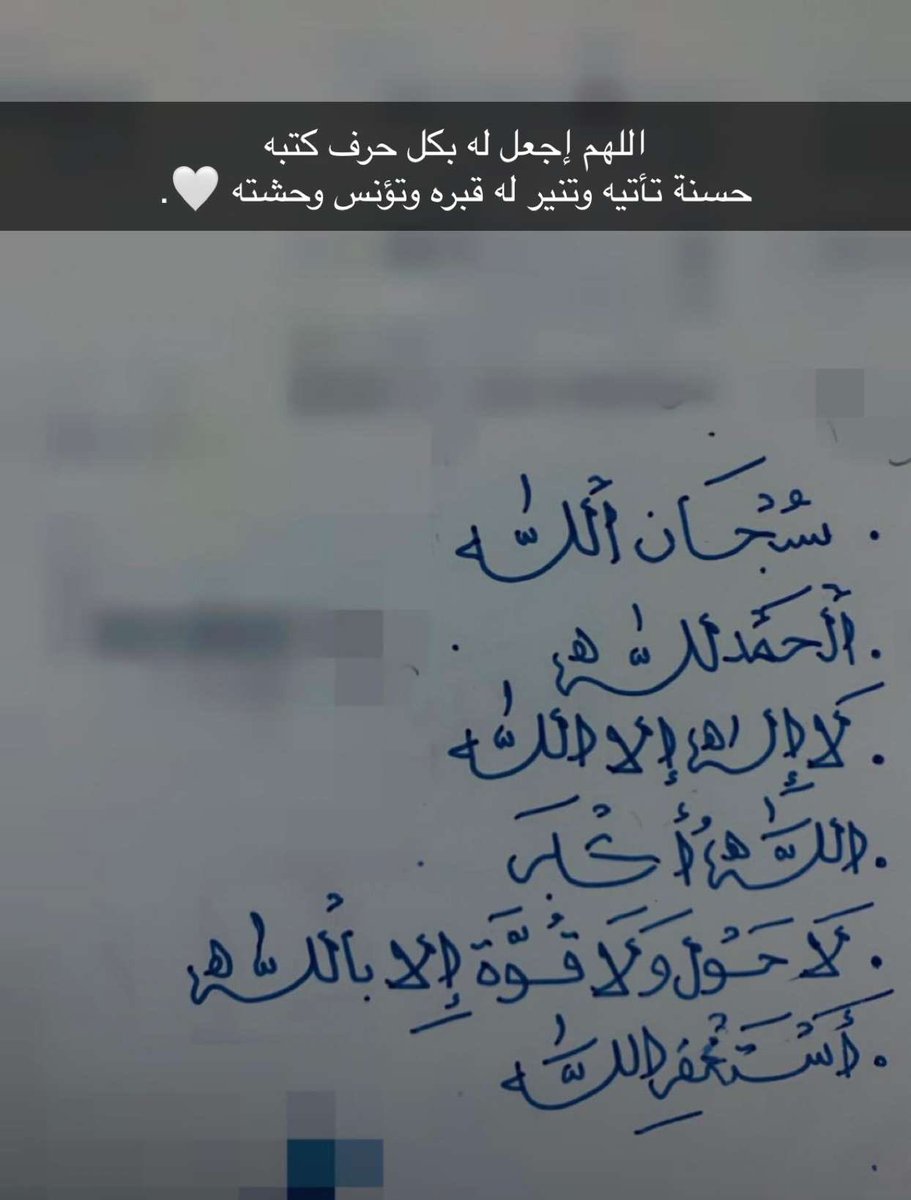 اللهم إجعل له بكل حرف كتبه
حسنة تأتيه وتنير له قبره وتؤنس وحشته 🤍.
. سُبْحَان ٱللَّٰه
. ٱلْحَمْدللَّٰه
. لَا إِله إلا اللَّٰه
. اللَّٰهُ أَكْبَر
. لَا حَوْل وَلَا قُوَّة إِلا بالْلَّٰه
. أَسْتَغْفِر اللَّٰه